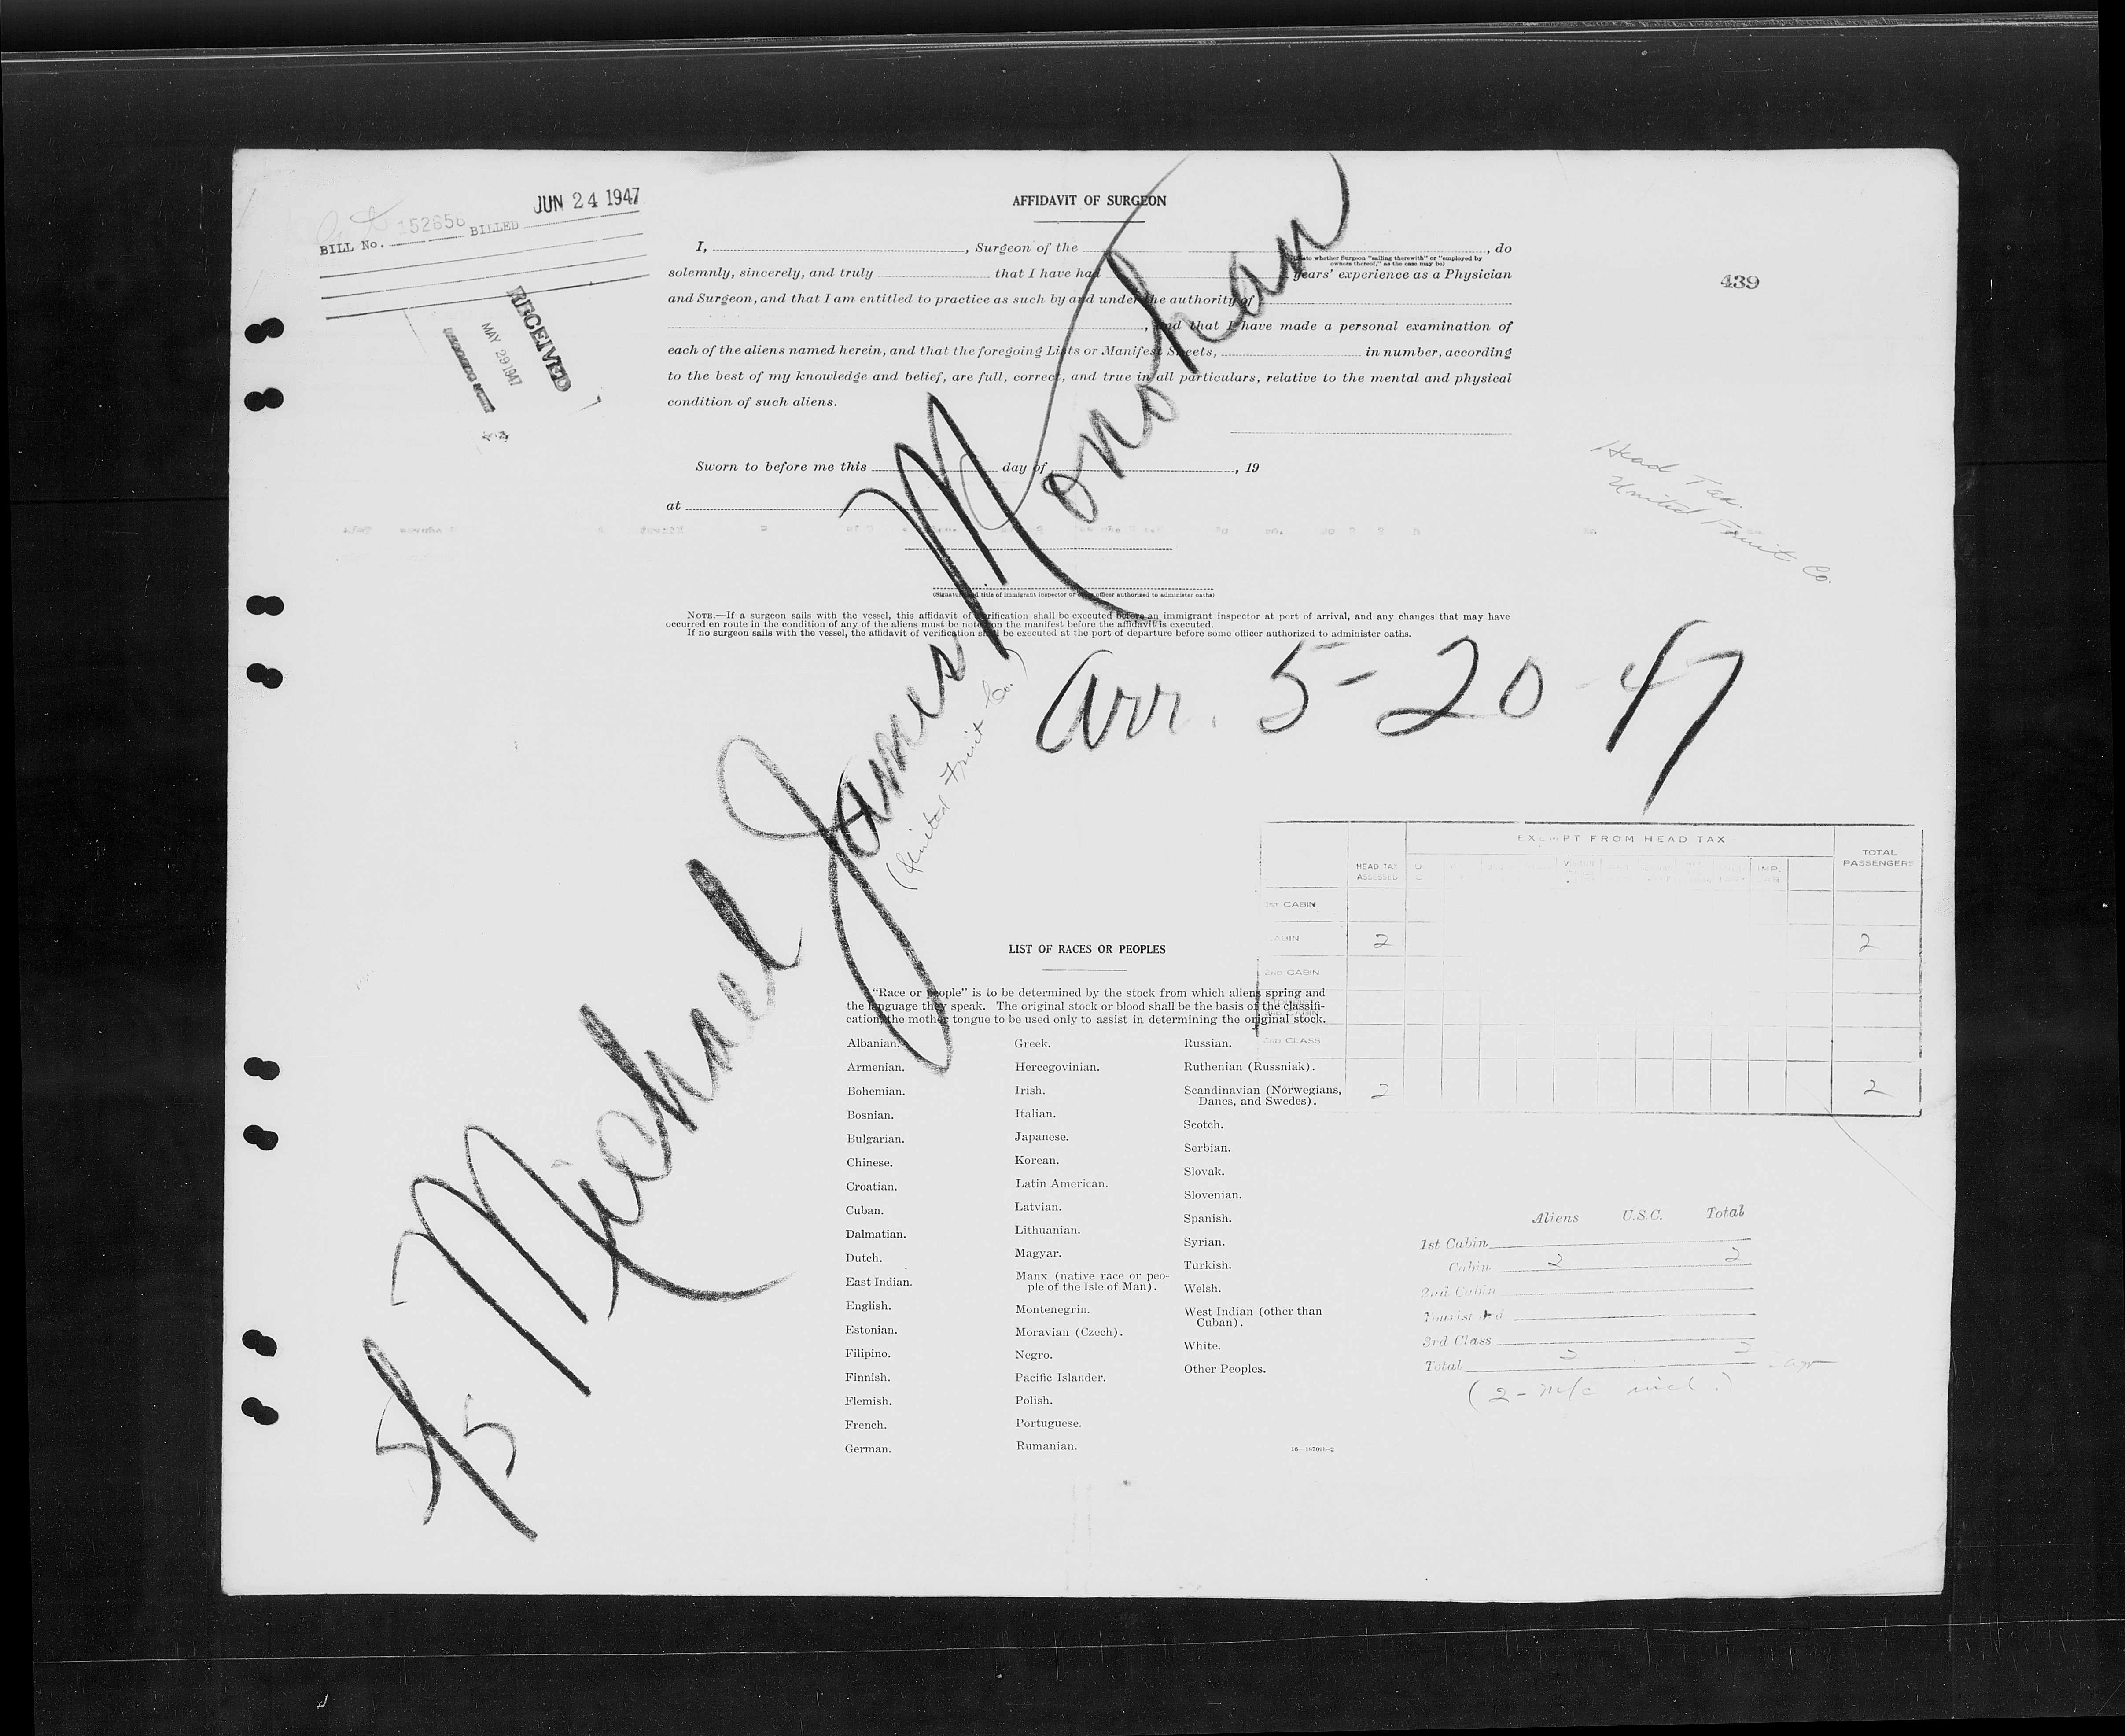 JUN 24 1947
BILL No. 152656 BILLED
RECEIVED
MAY 29 1947
439
AFFIDAVIT OF SURGEON
I, , Surgeon of the , do
(State whether Surgeon "sailing therewith" or "employed by
owners thereof," as the case may be)
solemnly, sincerely, and truly that I have had years' experience as a Physician
and Surgeon, and that I am entitled to practice as such by and under the authority of
, and that I have made a personal examination of
each of the aliens named herein, and that the foregoing Lists or Manifest Sheets, in number, according
to the best of my knowledge and belief, are full, correct, and true in all particulars, relative to the mental and physical
condition of such aliens.
Sworn to before me this day of , 19
at
(Signature and title of immigrant inspector or other officer authorized to administer oaths)
NOTE.—If a surgeon sails with the vessel, this affidavit of verification shall be executed before an immigrant inspector at port of arrival, and any changes that may have
occurred en route in the condition of any of the aliens must be noted on the manifest before the affidavit is executed.
If no surgeon sails with the vessel, the affidavit of verification shall be executed at the port of departure before some officer authorized to administer oaths.
Head Tax
United Fruit Co.
S/S Michael James Monohan
(United Fruit Co.)
Arr. 5-20-47
EXEMPT FROM HEAD TAX
HEAD TAX
ASSESSED
TOTAL
PASSENGERS
1ST CABIN
CABIN 2 2
2ND CABIN
2ND CLASS
2 2
LIST OF RACES OR PEOPLES
"Race or people" is to be determined by the stock from which aliens spring and
the language they speak. The original stock or blood shall be the basis of the classifi-
cation, the mother tongue to be used only to assist in determining the original stock.
Albanian.
Armenian.
Bohemian.
Bosnian.
Bulgarian.
Chinese.
Croatian.
Cuban.
Dalmatian.
Dutch.
East Indian.
English.
Estonian.
Filipino.
Finnish.
Flemish.
French.
German.
Greek.
Hercegovinian.
Irish.
Italian.
Japanese.
Korean.
Latin American.
Latvian.
Lithuanian.
Magyar.
Manx (native race or peo-
ple of the Isle of Man).
Montenegrin.
Moravian (Czech).
Negro.
Pacific Islander.
Polish.
Portuguese.
Rumanian.
Russian.
Ruthenian (Russniak).
Scandinavian (Norwegians,
Danes, and Swedes).
Scotch.
Serbian.
Slovak.
Slovenian.
Spanish.
Syrian.
Turkish.
Welsh.
West Indian (other than
Cuban).
White.
Other Peoples.
Aliens U.S.C. Total
1st Cabin
Cabin 2 2
2nd Cabin
Tourist 3rd
3rd Class
Total 2 2
(2 - M/c incl.)